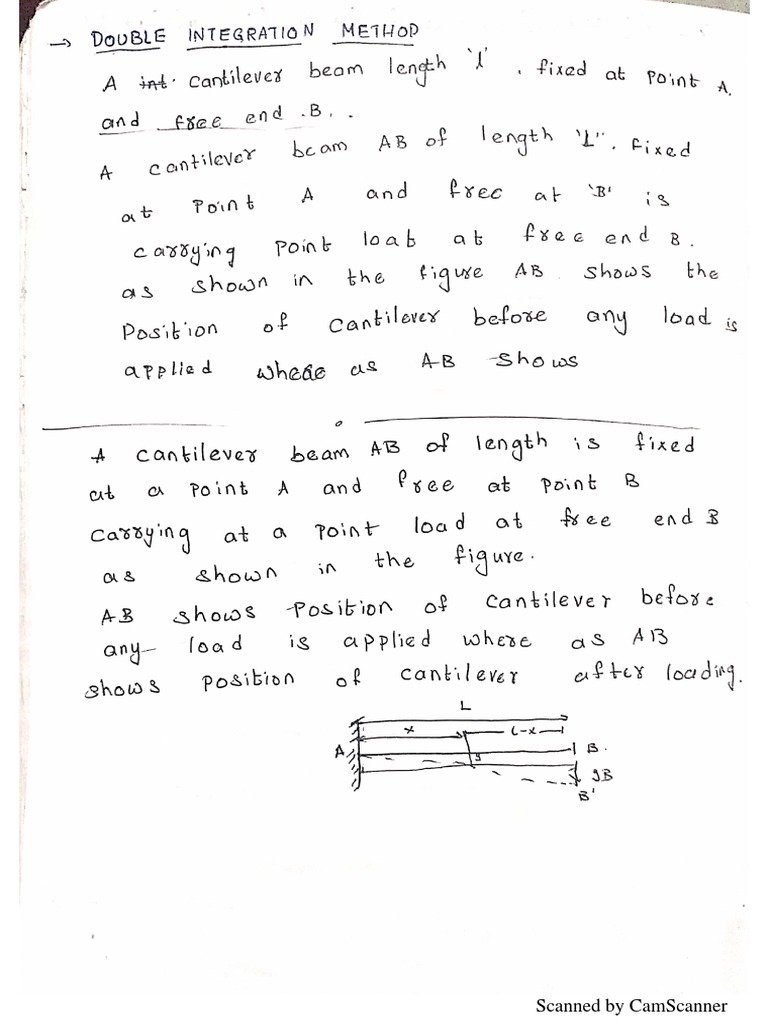 → DOUBLE INTEGRATION METHOD
A int. cantilever beam length 'l', fixed at point A.
and free end .B..
A cantilever beam AB of length "L", fixed
at point A and free at 'B' is
carrying point loab at free end B.
as shown in the figure AB shows the
Position of cantilever before any load is
applied where as AB shows
A cantilever beam AB of length is fixed
at a point A and free at point B
carrying at a point load at free end B
as shown in the figure.
AB shows Position of cantilever before
any load is applied where as AB
shows position of cantilever after loading.
L
x L-x
A B.
yB
B'
Scanned by CamScanner